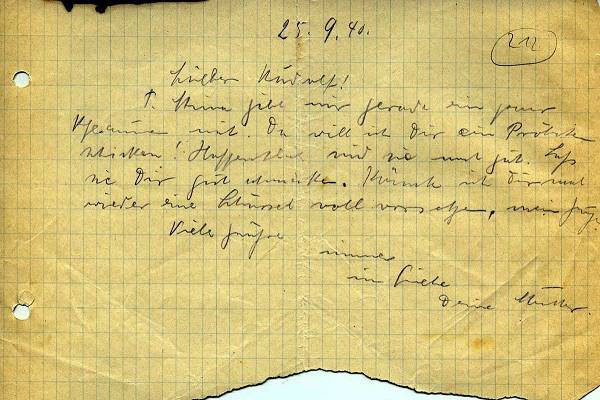 25. 9. 40.
212
Lieber Rudolf!
T. Anna gibt mir gerade ein paar
Pflaumen mit. Da will ich Dir ein Pröbchen
schicken! Hoffentlich sind sie noch gut. Lass
sie Dir gut schmecken. Könnt ich Dir mal
wieder eine Schüssel voll vorsetzen, mein Junge.
Viele Grüße
immer
in Liebe
Deine Mutter.